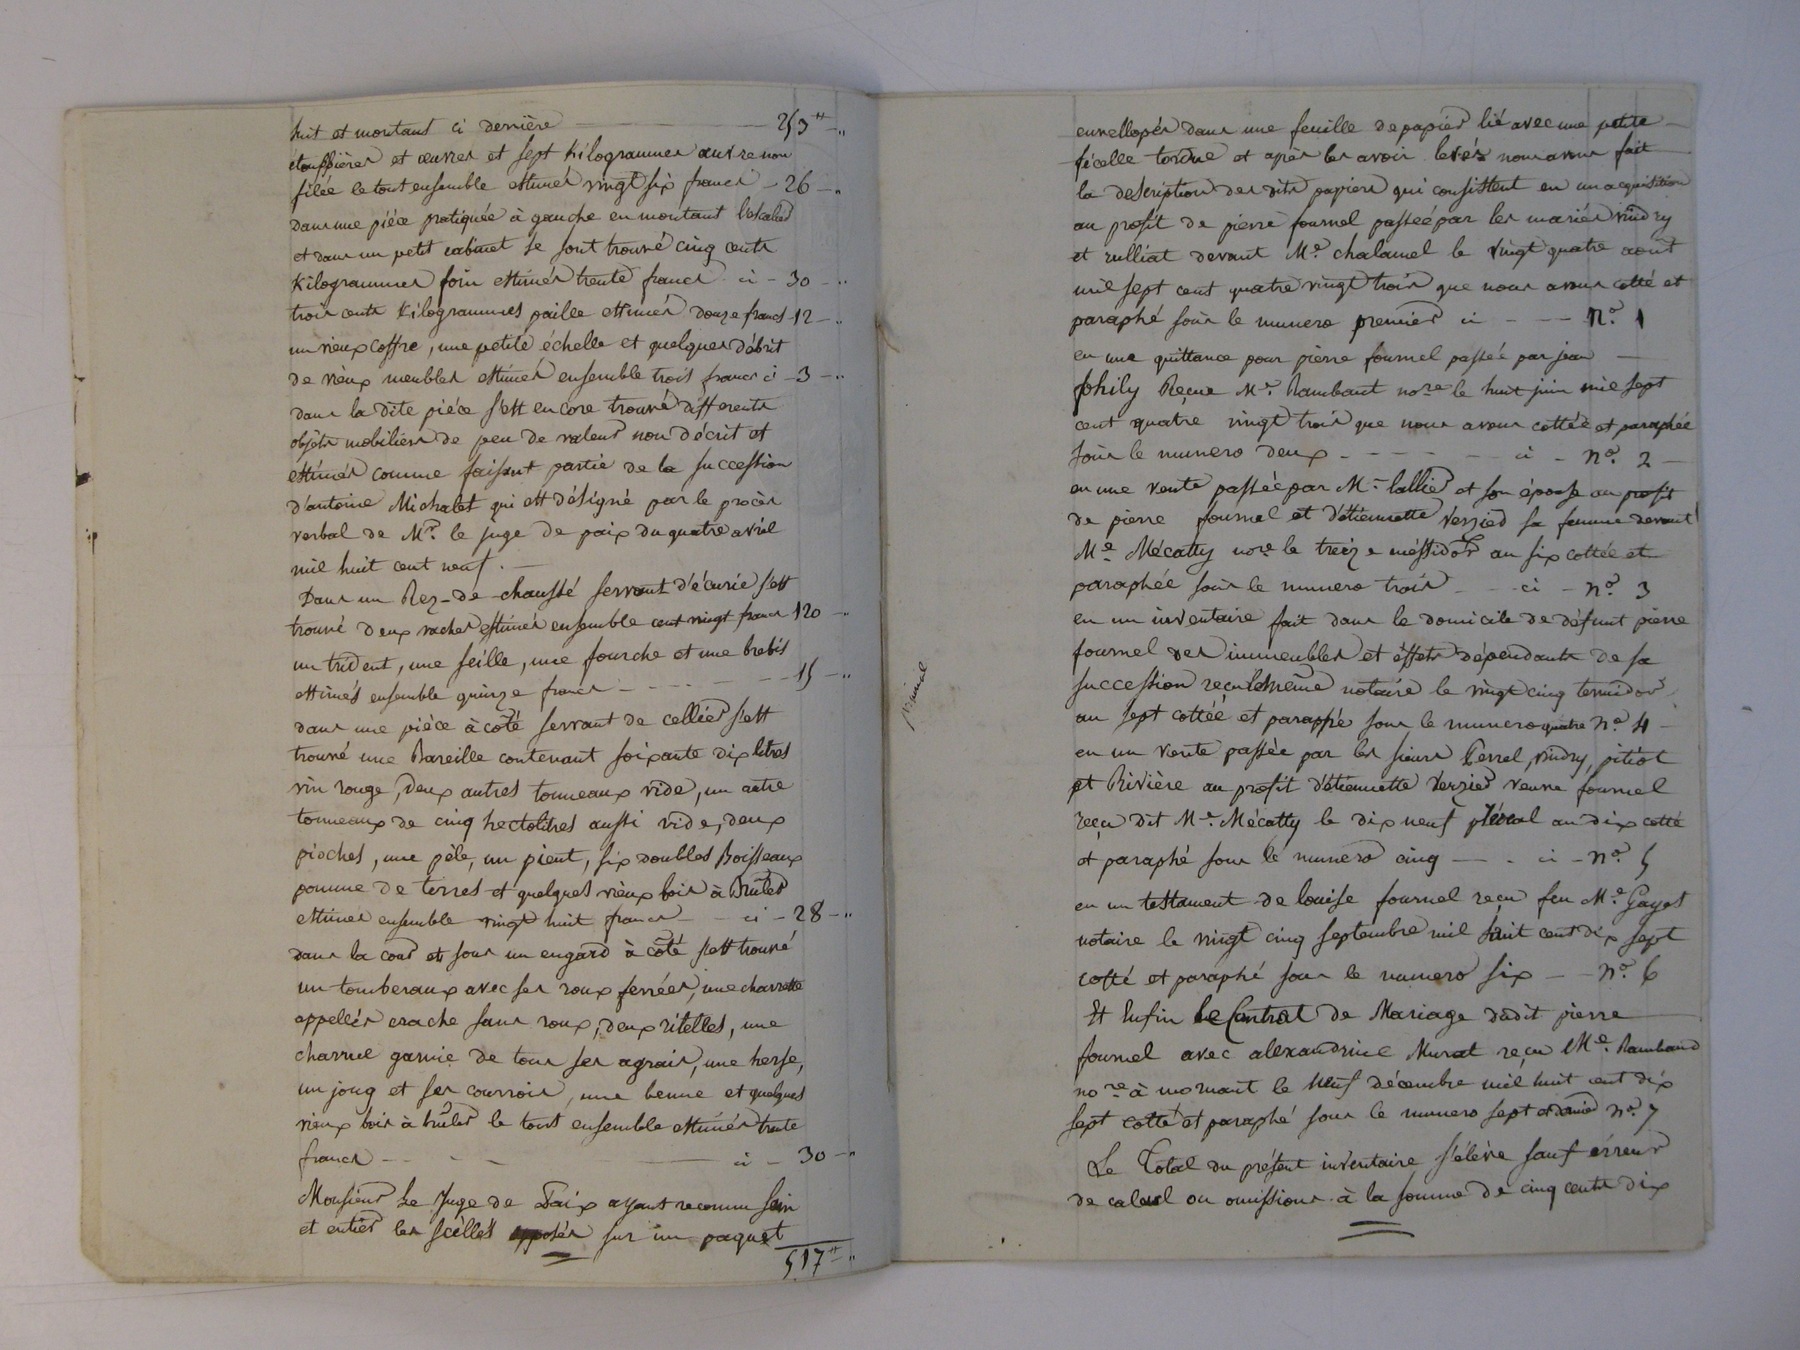 huit et montant ci derrière 253 ₶ "
étouppières et œuvres et sept kilogrammes œuvre non
filée le tout ensemble estimés vingt six francs - 26 - "
Dans une piéce pratiquée à gauche en montant l'escalier
et dans un petit cabinet se sont trouvé cinq cents
Kilogrammes foin estimés trente francs ci - 30 - "
trois cents Kilogrammes paille estimés douze francs - 12 - "
un vieux coffre, une petite échelle et quelques débrit
de vièux meubles estimés ensemble trois francs ci - 3 - "
dans la dite piéce s'est encore trouvé differents
objèts mobiliers de peu de valeur non décrit et
estimés comme faisant partie de la succession
d'antoine Michalet qui est désigné par le procès
verbal de Mr. le juge de paix du quatre avril
mil huit cent neuf. —
Dans un Rez-de-chaussé servant d'écurie s'est
trouvé deux vaches estimés ensemble cent vingt francs 120 - "
un trident, une seille, une fourche et une brebis
estimés ensemble quinze francs - - - - 15 - "
dans une pièce à coté servant de cellier s'est
trouvé une Bareille contenant soixante dix litres
vin rouge, deux autres tonneaux vide, un autre
tonneaux de cinq hectolitres aussi vide, deux
pioches, une pèle, un pient, six doubles Boisseaux
pomme de terres et quelques vièux bois à Brûler
estimés ensemble vingt huit francs - ci - 28 - "
dans la cour et sous un engard à coté s'est trouvé
un tomberaux avec ses roux ferrées, une charrette
appellés crache sans roux, deux ritelles, une
charrue garnie de tous ses agrais, une herse,
un joug et ses courrois, une benne et quelques
vieux bois à brûler le tout ensemble estimés trente
francs - - - - ci - 30 - "
Monsieur Le Juge de Paix ayant reconnu sein
et entier les scéllés apposés sur un paquet
517 ₶ "
envellopés dans une feuille de papier lié avec une petite
ficelle tordue et après les avoir levés nous avons fait
la description des dits papiers qui consistent en un acquisition
au profit de pierre fournel passée par les mariés vindry
et rulliat devant Me. chalamel le vingt quatre aout
mil sept cent quatre vingt trois que nous avons cotté et
paraphé sous le numero premier ci - - - no. 1
en une quittance pour pierre fournel passée par jean
phily Reçue Me. Rambaut nore le huit juin mil sept
cent quatre vingt trois que nous avons cottée et paraphée
sous le numero deux - - - - ci - no. 2
en une vente passée par Me lallier et son épouse au profit
de pierre fournel et d'étiennette Verzier sa femme devant
Me Mécatty nore le treize méssidor an six cottée et
paraphée sous le numero trois - - ci - no. 3
en un inventaire fait dans le domicile de défunt pierre
fournel des immeubles et éffets dépendants de sa
succession reçu le même notaire le vingt cinq termidor
an sept cottéé et paraphé sous le numero quatre no 4
en un vente passée par les sieurs Perrel, vindry, pitiot
et Rivière au profit d'étiennette Verzier veuve fournel
reçu dit Me. Mécatty le dix neuf floréal an dix cotté
et paraphé sous le numero cinq - - ci - no. 5
en un testament de louise fournel reçu feu Me. Gayet
notaire le vingt cinq septembre mil huit cent dix sept
cotté et paraphé sous le numero six - - no. 6
Et Enfin le Contrat de Mariage dudit pierre
fournel avec alexandrine Murat reçu Me. Rambaud
nore à mornant le neuf décembre mil huit cent dix
sept cotté et paraphé sous le numero sept et dernier no. 7
Le Total du présent inventaire s'élève sauf érreur
de calcul ou omissions à la somme de cinq cents dix